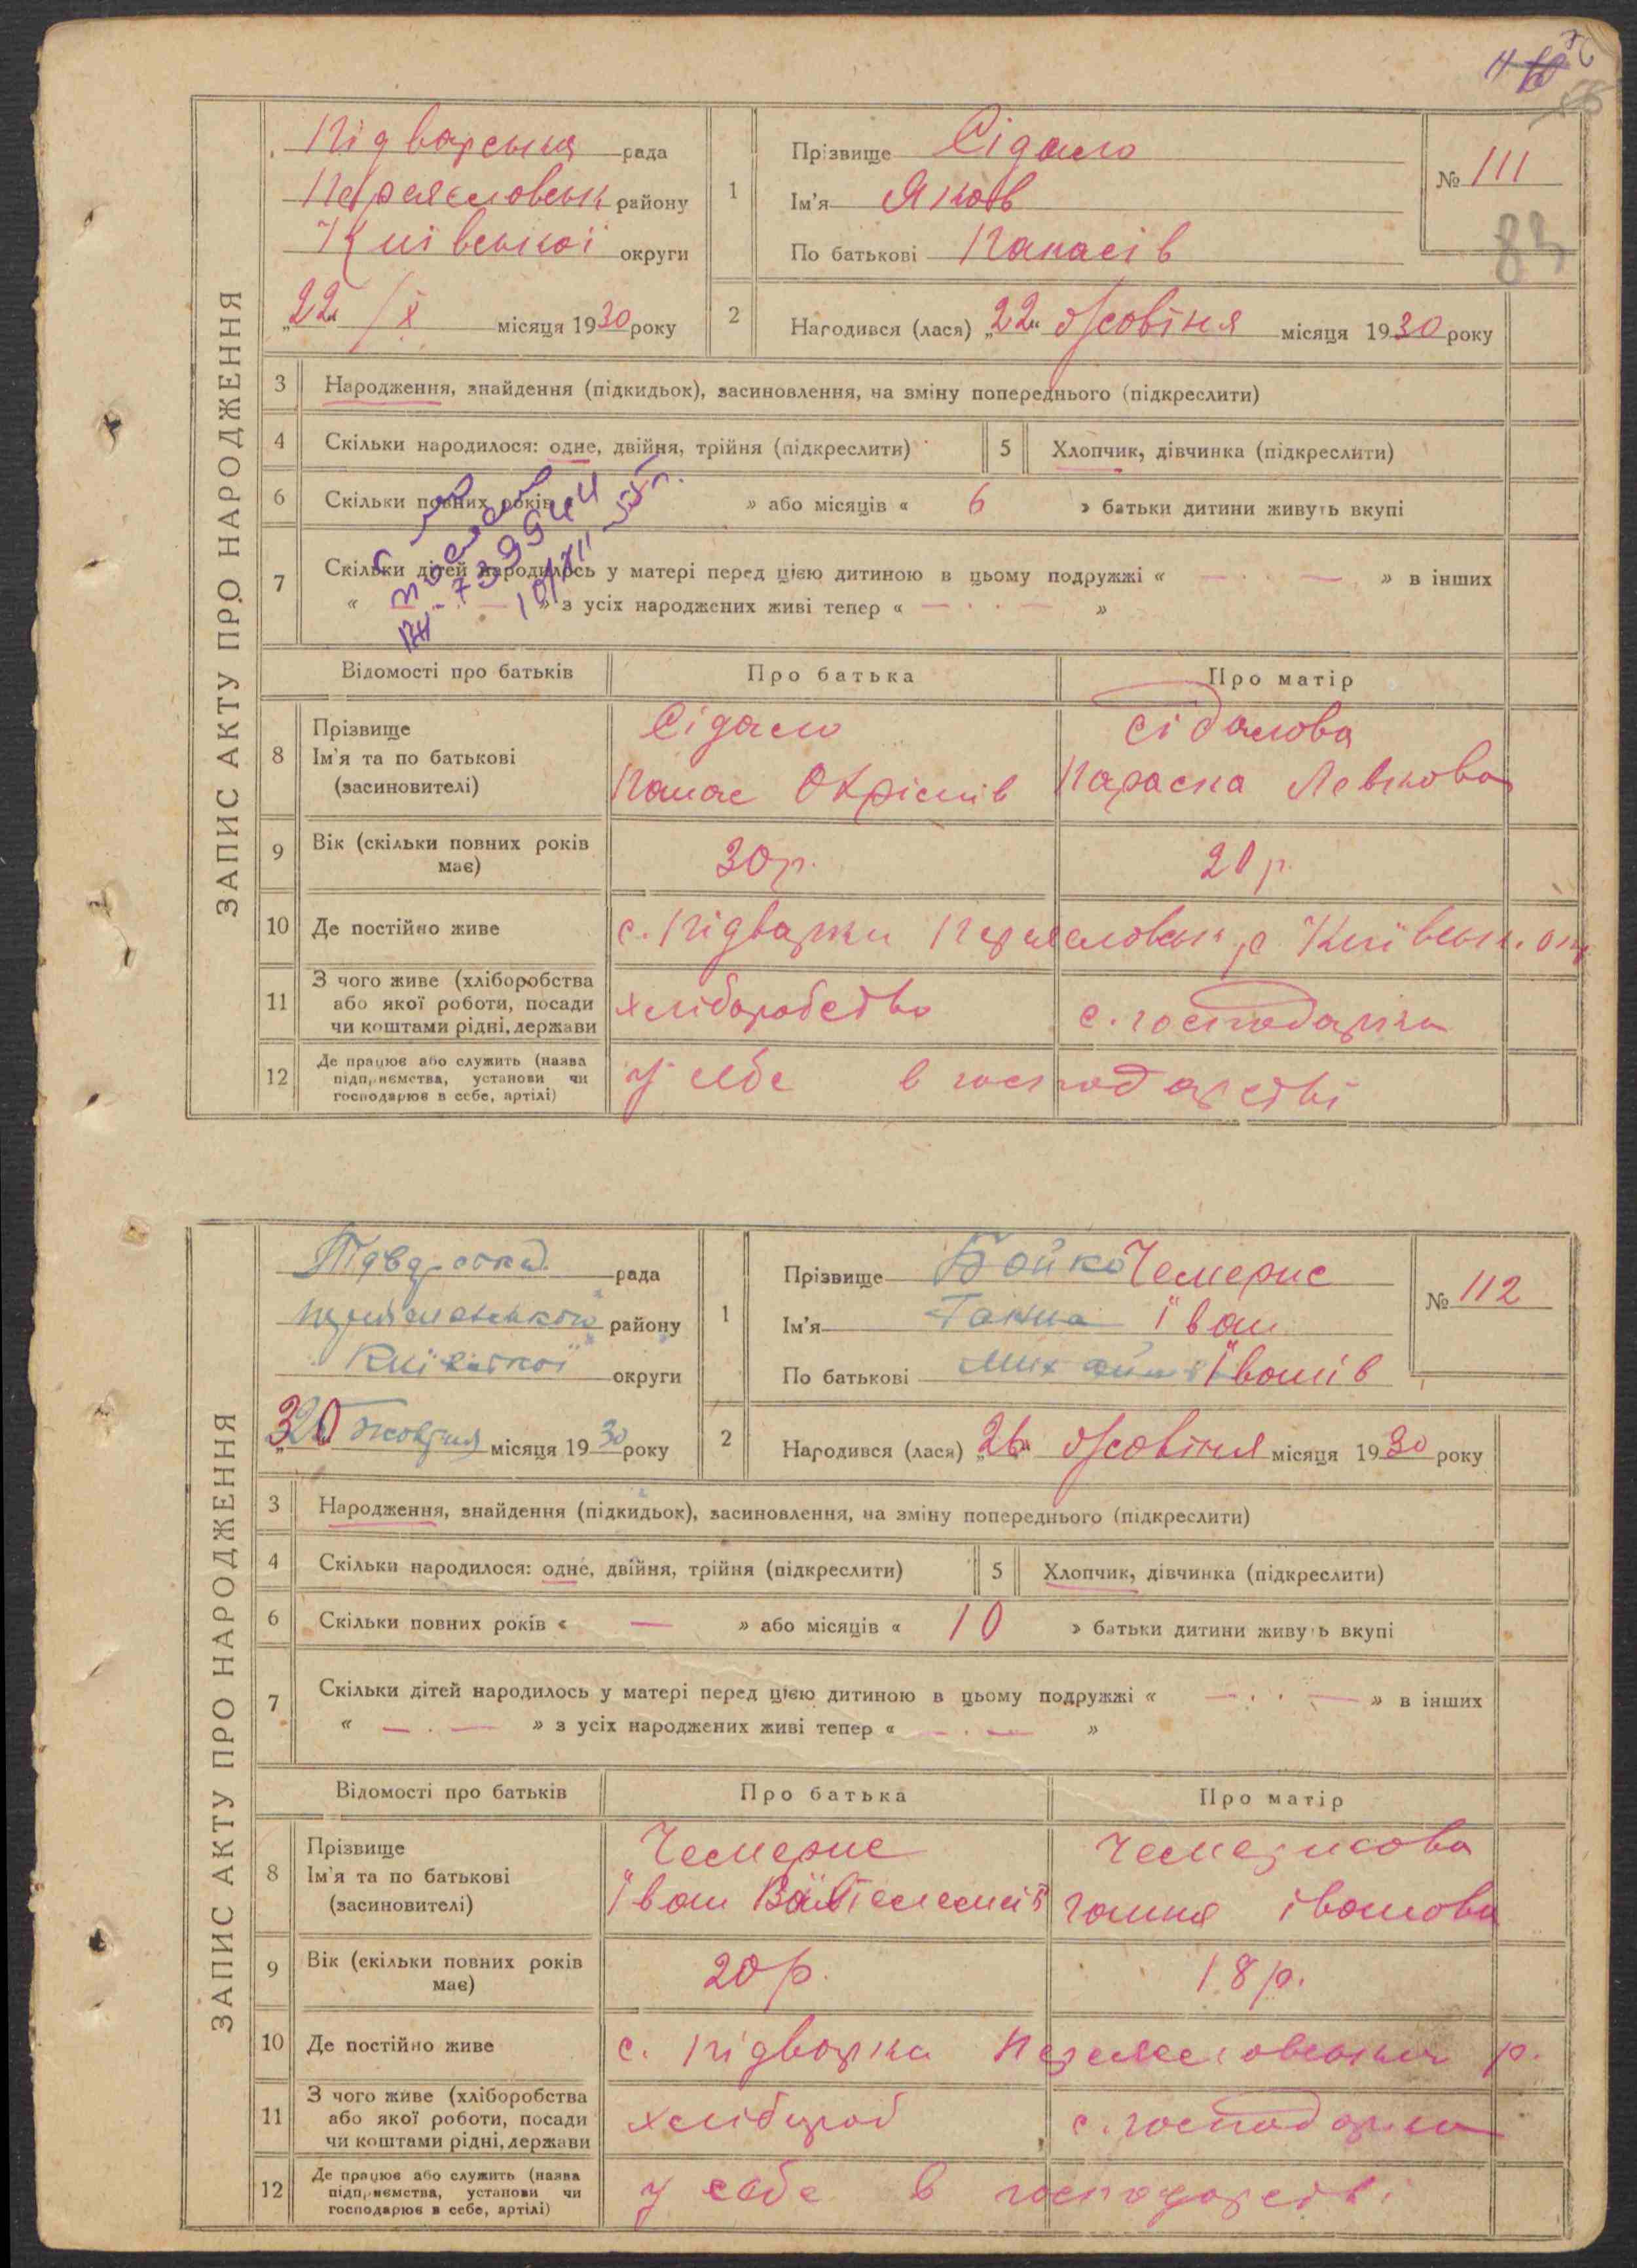 ЗАПИС АКТУ ПРО НАРОДЖЕННЯ
Підварська рада
Переяславськ району
Київської округи
„22“ / X місяця 1930 року
1
Прізвище Сідало
Ім'я Яков
По батькові Панасів
№ 111
83
2
Народився (лася) „22“ Жовтня місяця 1930 року
3 Народження, знайдення (підкидьок), засиновлення, на зміну попереднього (підкреслити)
4 Скільки народилося: одне, двійня, трійня (підкреслити)
5 Хлопчик, дівчинка (підкреслити)
6 Скільки повних років » або місяців « 6 » батьки дитини живуть вкупі
7 Скільки дітей народилось у матері перед цією дитиною в цьому подружжі « — · · — » в інших
« — · — » з усіх народжених живі тепер « — · · — »
Відомості про батьків
Про батька
Про матір
8 Прізвище
Ім'я та по батькові
(засиновителі)
Сідало
Панас
Сідалова
Параска Левкова
9 Вік (скільки повних років
має)
30 р.
20 р.
10 Де постійно живе
с. Підварки Переяславськ р Київськ. окр
11 З чого живе (хліборобства
або якої роботи, посади
чи коштами рідні, держави
хліборобство
с. господарка
12 Де працює або служить (назва
підприємства, установи чи
господарює в себе, артілі)
У себе в господарстві
ЗАПИС АКТУ ПРО НАРОДЖЕННЯ
Підварська рада
Переяславського району
Київської округи
жовтня місяця 1930 року
1
Прізвище Бойко Чемерис
Ім'я Ганна Іван
По батькові Іванів
№ 112
2
Народився (лася) „26“ Жовтня місяця 1930 року
3 Народження, знайдення (підкидьок), засиновлення, на зміну попереднього (підкреслити)
4 Скільки народилося: одне, двійня, трійня (підкреслити)
5 Хлопчик, дівчинка (підкреслити)
6 Скільки повних років « — » або місяців « 10 » батьки дитини живуть вкупі
7 Скільки дітей народилось у матері перед цією дитиною в цьому подружжі « — · · — » в інших
« — · — » з усіх народжених живі тепер « — · — »
Відомості про батьків
Про батька
Про матір
8 Прізвище
Ім'я та по батькові
(засиновителі)
Чемерис
Іван
Чемерисова
Ганна Іванова
9 Вік (скільки повних років
має)
20 р.
18 р.
10 Де постійно живе
с. Підварки Переяславськ р.
11 З чого живе (хліборобства
або якої роботи, посади
чи коштами рідні, держави
хлібороб
с. господарка
12 Де працює або служить (назва
підприємства, установи чи
господарює в себе, артілі)
У себе в господарстві